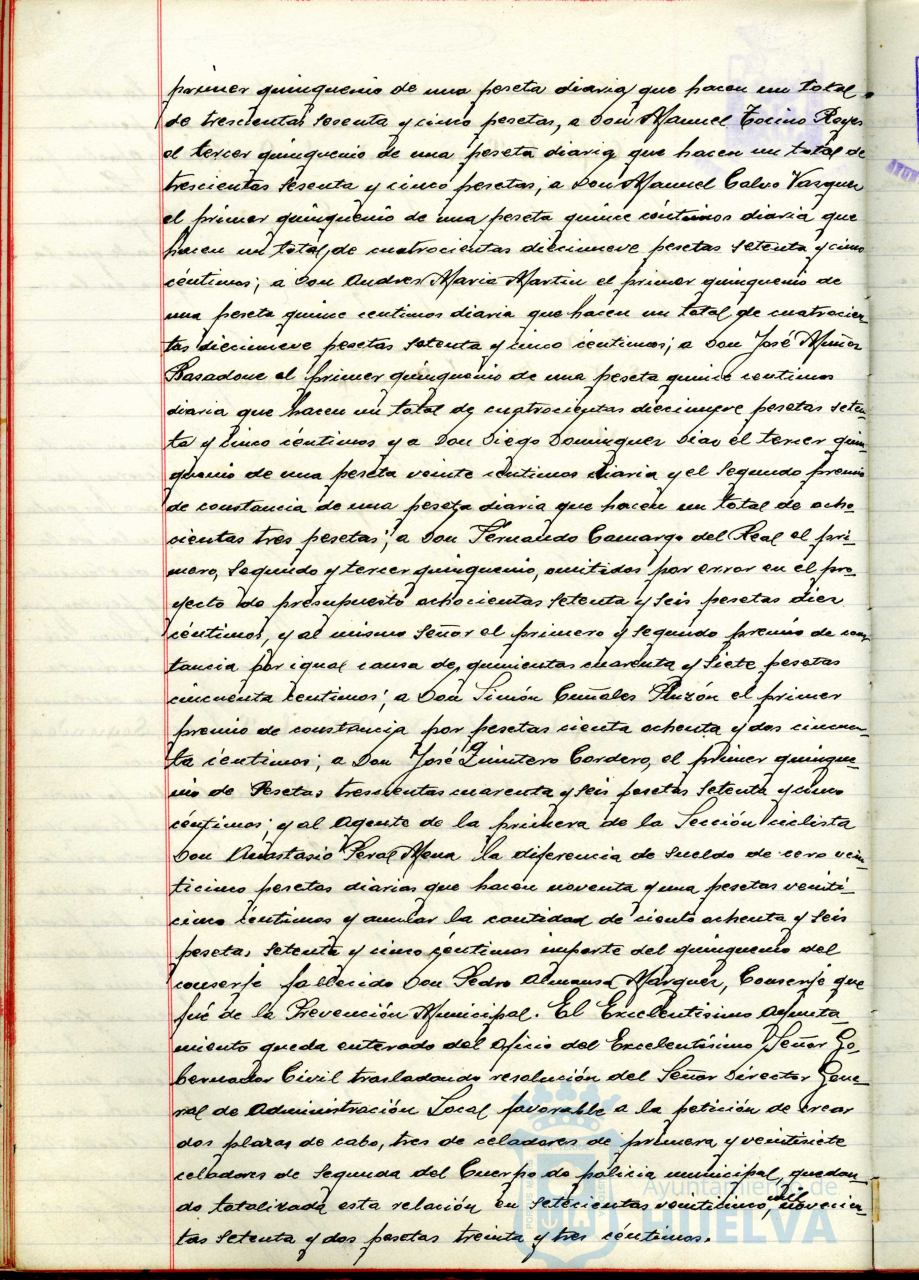 primer quinquenio de una peseta diaria que hacen un total
de trescientas sesenta y cinco pesetas, a Don Manuel Tocino Reyes
el tercer quinquenio de una peseta diaria que hacen un total de
trescientas sesenta y cinco pesetas; a Don Manuel Calvo Vazquez
el primer quinquenio de una peseta quince céntimos diaria que
hacen un total de cuatrocientas diecinueve pesetas setenta y cinco
céntimos; a Don Andres Maria Martin el primer quinquenio de
una peseta quince centimos diaria que hacen un total de cuatrocien-
tas diecinueve pesetas setenta y cinco centimos; a Don José Muñoz
Basadone el primer quinquenio de una peseta quince centimos
diaria que hacen un total de cuatrocientas diecinueve pesetas seten-
ta y cinco céntimos y a Don Diego Dominguez Diaz el tercer quin-
quenio de una peseta veinte centimos diaria y el segundo premio
de constancia de una peseta diaria que hacen un total de ocho-
cientas tres pesetas; a Don Fernando Camargo del Real el pri-
mero, segundo y tercer quinquenio, omitidos por error en el pro-
yecto de presupuesto ochocientas setenta y seis pesetas diez
céntimos, y al mismo Señor el primero y segundo premio de cons-
tancia por igual causa de, quinientas cuarenta y siete pesetas
cincuenta centimos; a Don Simón Cuñales Pinzón el primer
premio de constancia por pesetas cienta ochenta y dos cincuen-
ta céntimos; a Don José Quintero Cordero, el primer quinque-
nio de Pesetas trescientas cuarenta y seis pesetas setenta y cinco
céntimos; y al Agente de la primera de la Sección ciclista
Don Anastasio Peral Mena la diferencia de sueldo de cero vein-
ticinco pesetas diarias que hacen noventa y una pesetas veinti-
cinco céntimos y anular la cantidad de ciento ochenta y seis
pesetas setenta y cinco céntimos importe del quinquenio del
conserje fallecido Don Pedro Almansa Márquez, Conserje que
fué de la Prevención Municipal. El Excelentísimo Ayunta-
miento queda enterado del Oficio del Excelentísimo Señor Go-
bernador Civil trasladando resolución del Señor Director Gene-
ral de Administración Local favorable a la petición de crear
dos plazas de cabo, tres de celadores de primera y veintisiete
celadores de segunda del Cuerpo de policia municipal, quedan-
do totalizada esta relación en setecientas veinticinco mil novecien-
tas setenta y dos pesetas treinta y tres céntimos.
Ayuntamiento de
HUELVA